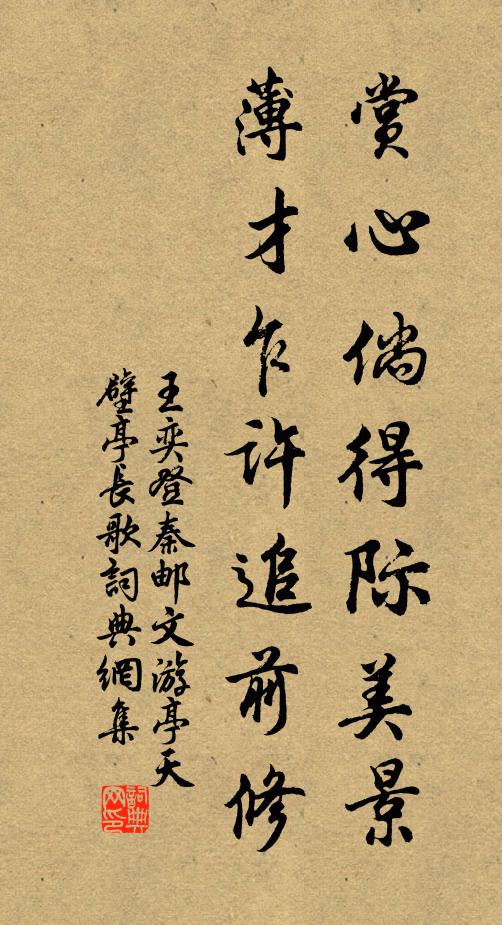 赏心倘得际美景
薄才乍许追前修
王奕登秦邮文游亭天
壁亭长歌詞典網集
詞典网印